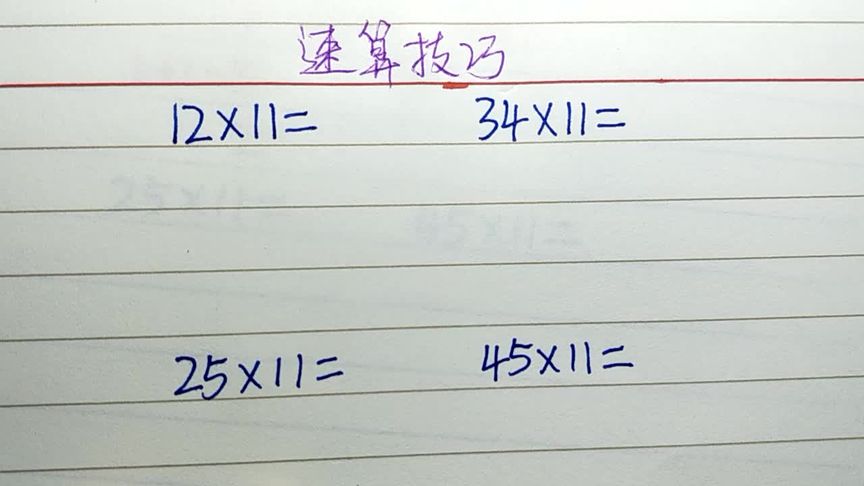 速算技巧
12×11= 34×11=
25×11= 45×11=